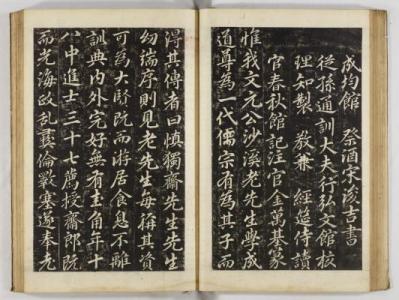 成均館 祭酒宋浚吉書
從孫通訓大夫行弘文館校
理知製 敎兼 經筵侍讀
官春秋館記注官金萬基篆
惟我文元公沙溪老先生學成
道尊為一代儒宗有為其子而
得其傳者曰愼獨齋先生先生
幼端序則見老先生每稱其資
可為大賢旣而游居食息不離
訓典內外完好無有圭角年十
八中進士三十七薦授齋郎旣
而光海政亂彛倫斁塞遂奉元